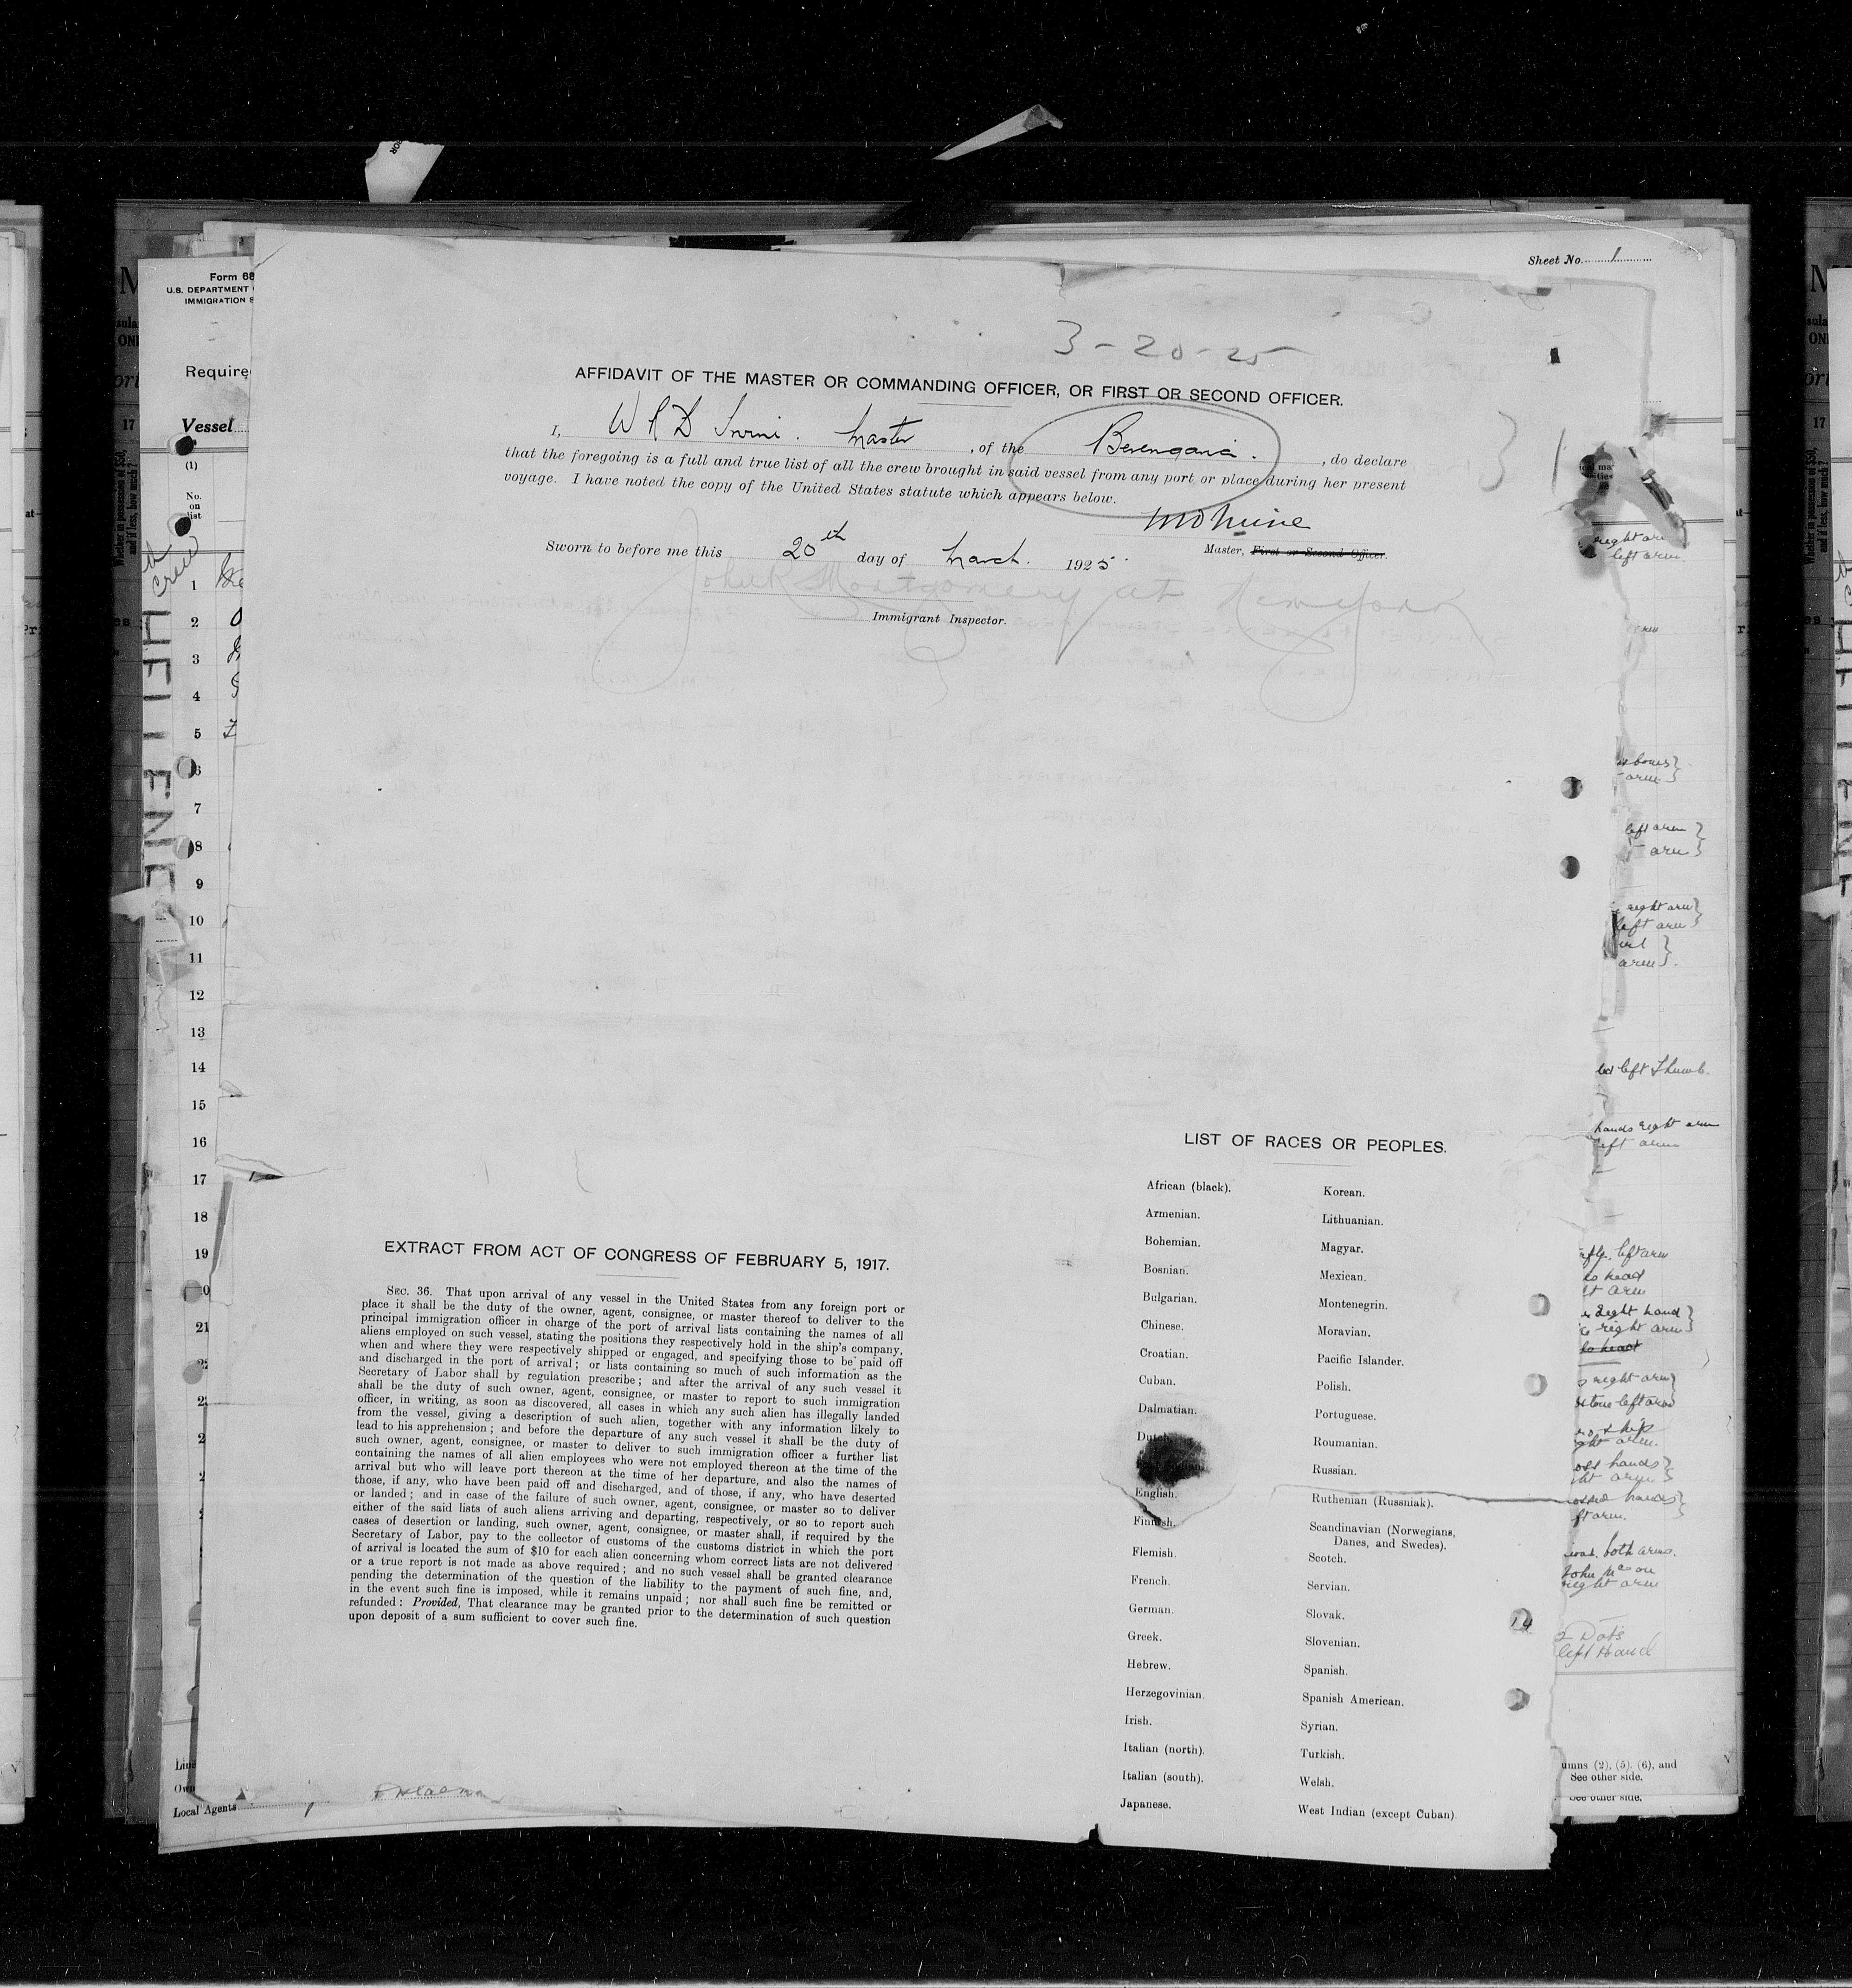 Sheet No. 1
3-20-25
AFFIDAVIT OF THE MASTER OR COMMANDING OFFICER, OR FIRST OR SECOND OFFICER.
I, Master, of the Berengaria., do declare
that the foregoing is a full and true list of all the crew brought in said vessel from any port or place during her present
voyage. I have noted the copy of the United States statute which appears below.
Sworn to before me this 20th day of March. 1925.
Master, First or Second Officer.
Montgomery at New York
Immigrant Inspector.
Form 68
U.S. DEPARTMENT
IMMIGRATION S
Require
Vessel
(1)
No.
on
list
crew
1
2
3
4
5
6
7
8
9
10
11
12
13
14
15
16
17
18
19
21
Local Agents
EXTRACT FROM ACT OF CONGRESS OF FEBRUARY 5, 1917.
SEC. 36. That upon arrival of any vessel in the United States from any foreign port or
place it shall be the duty of the owner, agent, consignee, or master thereof to deliver to the
principal immigration officer in charge of the port of arrival lists containing the names of all
aliens employed on such vessel, stating the positions they respectively hold in the ship's company,
when and where they were respectively shipped or engaged, and specifying those to be paid off
and discharged in the port of arrival; or lists containing so much of such information as the
Secretary of Labor shall by regulation prescribe; and after the arrival of any such vessel it
shall be the duty of such owner, agent, consignee, or master to report to such immigration
officer, in writing, as soon as discovered, all cases in which any such alien has illegally landed
from the vessel, giving a description of such alien, together with any information likely to
lead to his apprehension; and before the departure of any such vessel it shall be the duty of
such owner, agent, consignee, or master to deliver to such immigration officer a further list
containing the names of all alien employees who were not employed thereon at the time of the
arrival but who will leave port thereon at the time of her departure, and also the names of
those, if any, who have been paid off and discharged, and of those, if any, who have deserted
or landed; and in case of the failure of such owner, agent, consignee, or master so to deliver
either of the said lists of such aliens arriving and departing, respectively, or so to report such
cases of desertion or landing, such owner, agent, consignee, or master shall, if required by the
Secretary of Labor, pay to the collector of customs of the customs district in which the port
of arrival is located the sum of $10 for each alien concerning whom correct lists are not delivered
or a true report is not made as above required; and no such vessel shall be granted clearance
pending the determination of the question of the liability to the payment of such fine, and,
in the event such fine is imposed, while it remains unpaid; nor shall such fine be remitted or
refunded: Provided, That clearance may be granted prior to the determination of such question
upon deposit of a sum sufficient to cover such fine.
LIST OF RACES OR PEOPLES.
African (black).
Armenian.
Bohemian.
Bosnian.
Bulgarian.
Chinese.
Croatian.
Cuban.
Dalmatian.
Dutch
English.
Finnish.
Flemish.
French.
German.
Greek.
Hebrew.
Herzegovinian.
Irish.
Italian (north).
Italian (south).
Japanese.
Korean.
Lithuanian.
Magyar.
Mexican.
Montenegrin.
Moravian.
Pacific Islander.
Polish.
Portuguese.
Roumanian.
Russian.
Ruthenian (Russniak).
Scandinavian (Norwegians,
Danes, and Swedes).
Scotch.
Servian.
Slovak.
Slovenian.
Spanish.
Spanish American.
Syrian.
Turkish.
Welsh.
West Indian (except Cuban)
right ar
left arm.
arm
left arm
arm
right arm
left arm
arm
left Thumb.
hands right arm
left arm
left arm
head
arm
right hand
right arm
right arm
left arm
hands
hands
both arms.
John
right arm
2 Dots
left Hand
umns (2), (5), (6), and
See other side.
See other side.